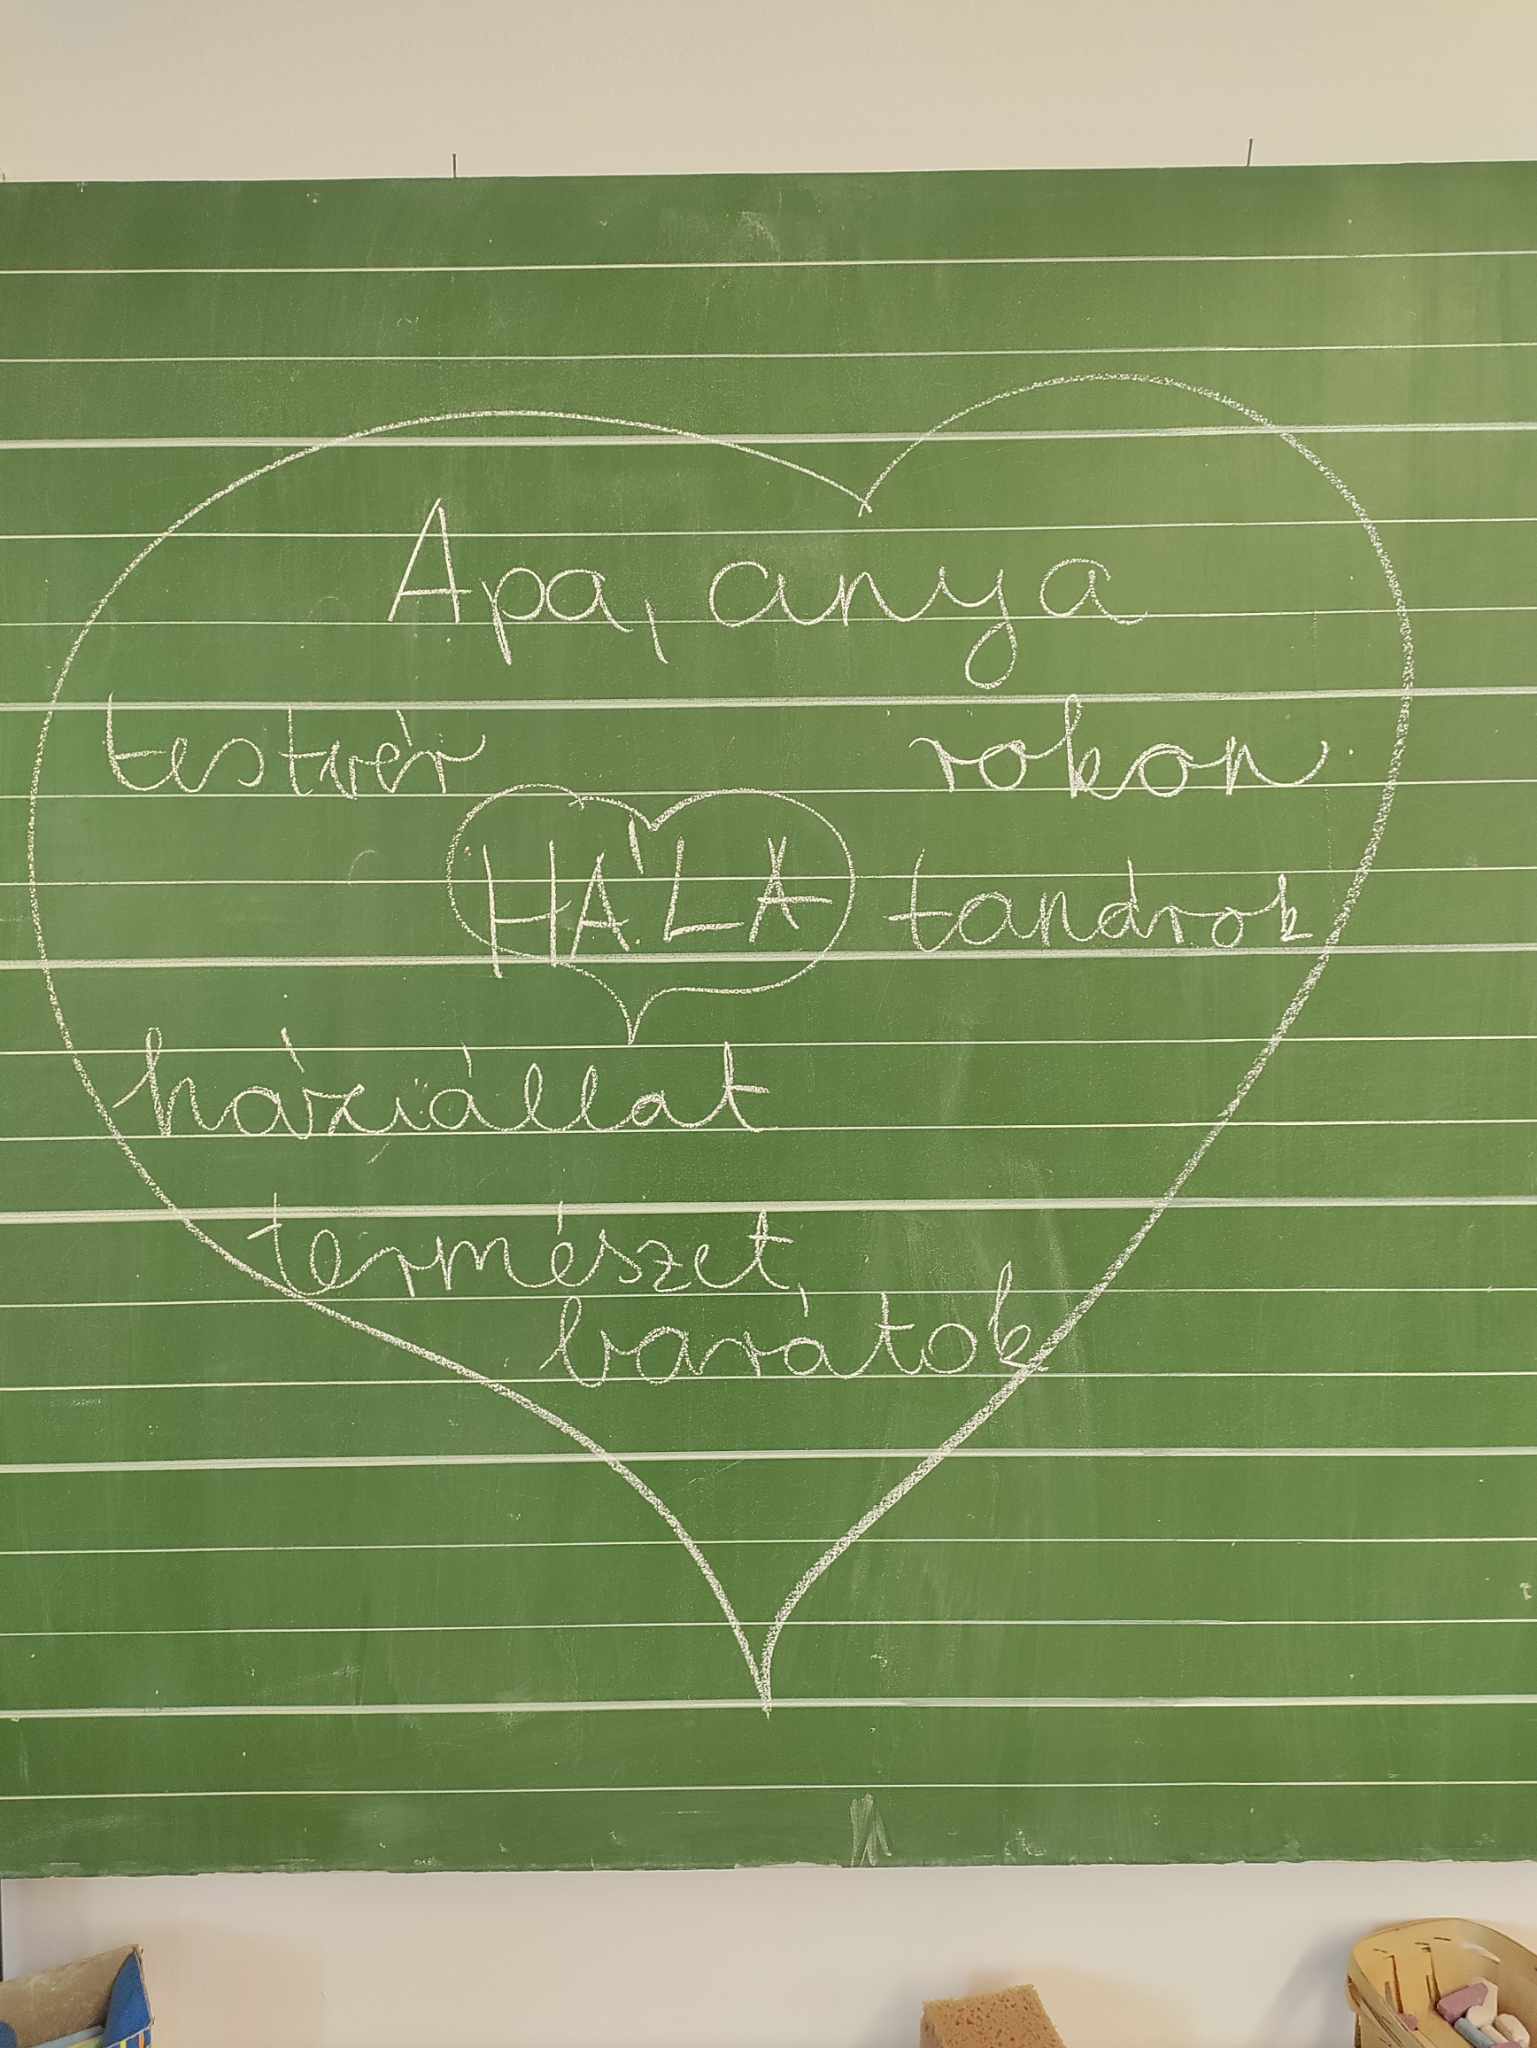 Apa, anya
testvér rokon
HÁLA tanárok
háziállat
természet,
barátok